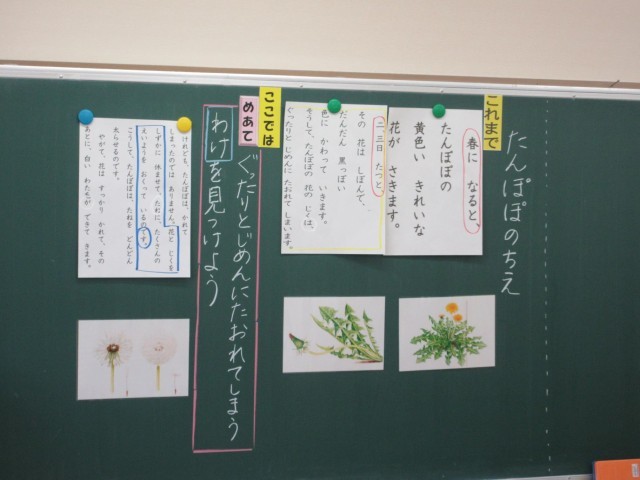 たんぽぽのちえ
これまで
春に なると、
たんぽぽの
黄色い きれいな
花が さきます。
二、三日 たつと、
その 花は しぼんで、
だんだん 黒っぽい
色に かわって いきます。
そうして、たんぽぽの 花の じくは、
ぐったりと じめんに たおれて しまいます。
ここでは
めあて
ぐったりとじめんにたおれてしまう
わけを見つけよう
けれども、たんぽぽは、かれて
しまったのでは ありません。花と じくを
しずかに 休ませて、たねに、たくさんの
えいようを おくって いるのです。
こうして、たんぽぽは、たねを どんどん
太らせるのです。
やがて、花は すっかり かれて、その
あとに、白い わた毛が できて きます。